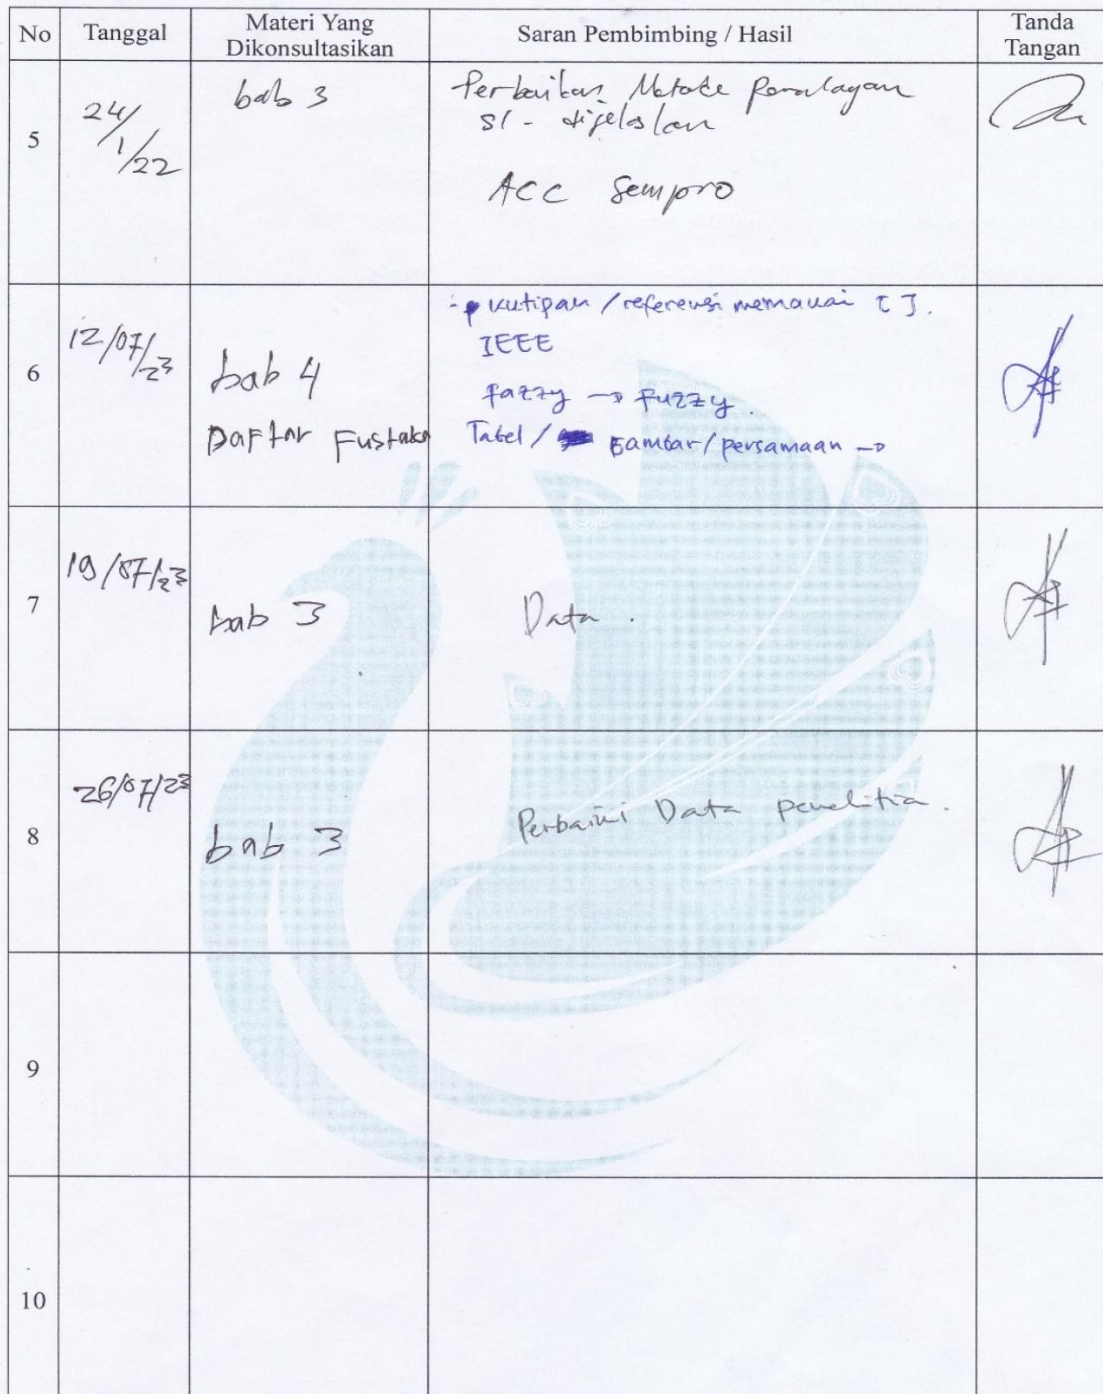 No Tanggal Materi Yang Dikonsultasikan Saran Pembimbing / Hasil Tanda Tangan
5
24/1/22
bab 3
Perbaikan Metode
dijelaskan
ACC Sempro
6
12/07/23
bab 4
Daftar Fustaka
kutipan / referensi memakai [ ].
IEEE
fazzy → fuzzy.
Tabel / gambar / persamaan →
7
19/07/23
bab 3
Data.
8
26/07/23
bab 3
Perbaiki Data penelitia.
9
10